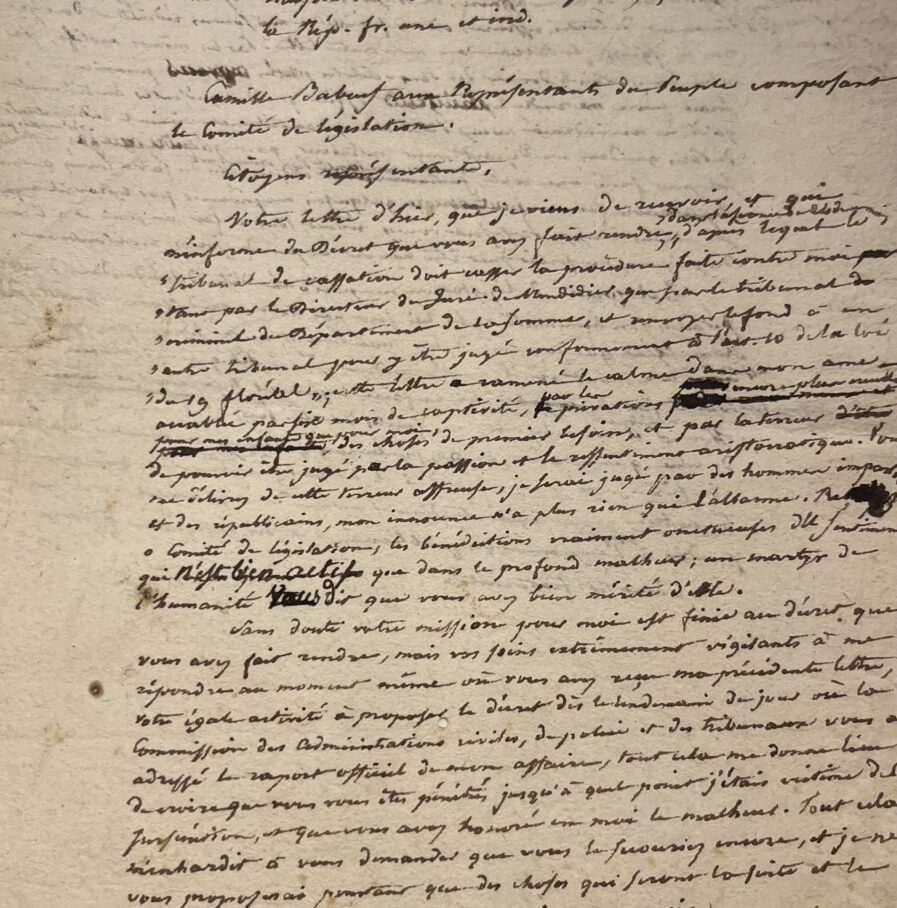 la Rép. fr. une et ind.
Camille Babeuf aux Représentants du Peuple composant
le Comité de législation.
Citoyens représentants,
Votre lettre d'hier, que je viens de recevoir, et qui
m'informe du Décret que vous avez fait rendre, d'après lequel le
"tribunal de cassation doit casser la procédure faite contre moi
"tant par le Directeur du Juré de Mondidier, que par le tribunal
"criminel du Département de la Somme, et renvoyer le fond à un
"autre tribunal pour y être jugé conformément à l'art. 10 de la loi
"du 19 floréal"; cette lettre a ramené le calme dans mon ame
accablée par six mois de captivité, par les privations encore plus
pour mes enfans que pour moi, des choses de premier besoin, et par la terreur
de pouvoir être jugé par la passion et le ressentiment aristocratique.
me délivrez de cette terreur affreuse, je serai jugé par des hommes
et des républicains, mon innocence n'a plus rien qui l'allarme.
ô Comité de législation, les bénédictions vraiment onctueuses du
qui n'est bien actif que dans le profond malheur; un martyr de
l'humanité vous dit que vous avez bien mérité d'elle.
Sans doute votre mission pour moi est finie au décret que
vous avez fait rendre, mais vos soins extrêmement vigilants à me
répondre au moment même où vous avez reçu ma précédente lettre,
votre égale activité à proposer le décret dès le lendemain du jour où la
Commission des administrations civiles, de police et des tribunaux vous a
adressé le raport officiel de mon affaire, tout cela me donne lieu
de croire que vous vous êtes pénétrés jusqu'à quel point j'étais victime de
persécution, et que vous avez honoré en moi le malheur. Tout cela
m'enhardit à vous demander que vous le secouriez encore, et je ne
vous proposerai pourtant que des choses qui seront la suite et le